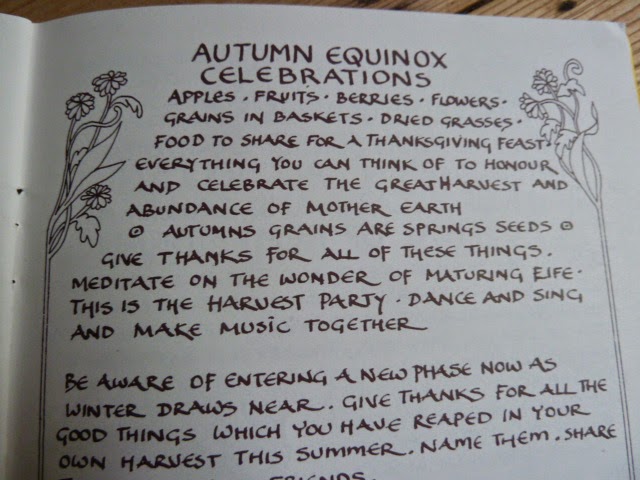 AUTUMN EQUINOX
CELEBRATIONS
APPLES . FRUITS . BERRIES . FLOWERS .
GRAINS IN BASKETS . DRIED GRASSES .
FOOD TO SHARE FOR A THANKSGIVING FEAST
EVERYTHING YOU CAN THINK OF TO HONOUR
AND CELEBRATE THE GREAT HARVEST AND
ABUNDANCE OF MOTHER EARTH
⊙ AUTUMNS GRAINS ARE SPRINGS SEEDS ⊙
GIVE THANKS FOR ALL OF THESE THINGS .
MEDITATE ON THE WONDER OF MATURING LIFE .
THIS IS THE HARVEST PARTY . DANCE AND SING
AND MAKE MUSIC TOGETHER
BE AWARE OF ENTERING A NEW PHASE NOW AS
WINTER DRAWS NEAR . GIVE THANKS FOR ALL THE
GOOD THINGS WHICH YOU HAVE REAPED IN YOUR
OWN HARVEST THIS SUMMER . NAME THEM . SHARE
FRIENDS .